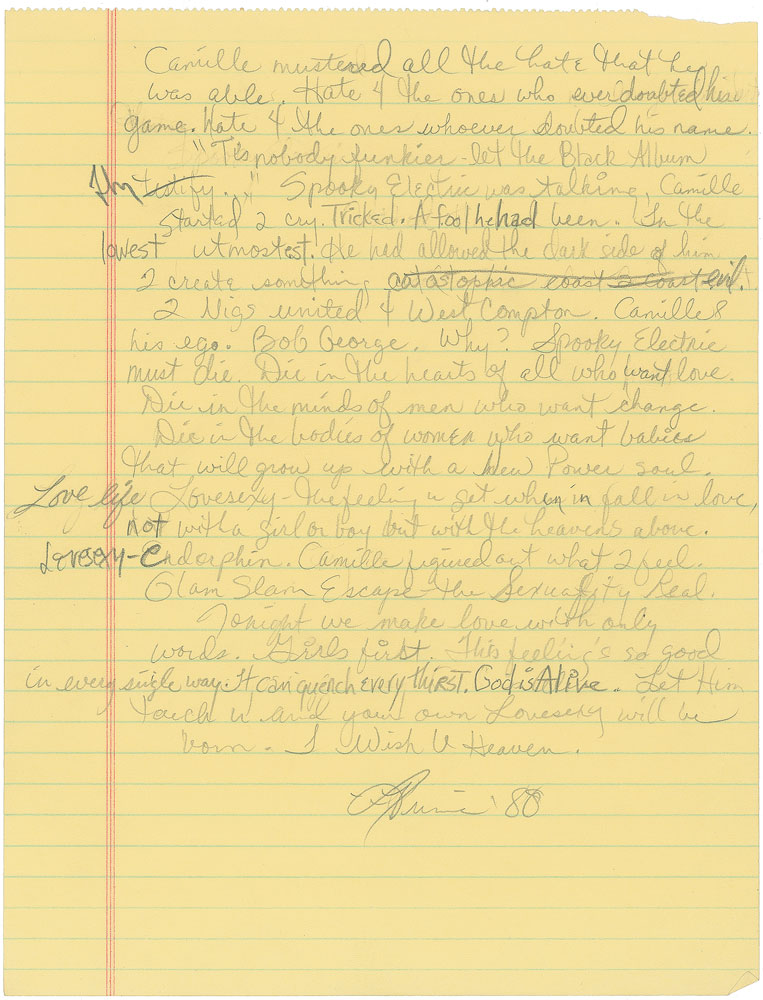 Camille mustered all the hate that he
was able. Hate 4 the ones who ever doubted his
game. Hate 4 the ones whoever doubted his name.
"Tis nobody funkier - let the Black Album
fly testify..." Spooky Electric was talking, Camille
started 2 cry. Tricked. A fool he had been. In the
lowest utmostest. He had allowed the dark side of him
2 create something catastophic coast 2 coast evil.
2 Nigs united 4 West Compton. Camille &
his ego. Bob George. Why? Spooky Electric
must die. Die in the hearts of all who want love.
Die in the minds of men who want change.
Die in the bodies of women who want babies
that will grow up with a New Power soul.
Love life Lovesexy - the feeling u get when u fall in love,
not with a girl or boy but with the heavens above.
Lovesexy - endorphin. Camille figured out what 2 feel.
Glam Slam Escape - the Sexuality Real.
Tonight we make love with only
words. Girls first. This feeling's so good
in every single way. It can quench every thirst. God is Alive. Let Him
touch u and your own Lovesexy will be
born. I Wish U Heaven.
'88